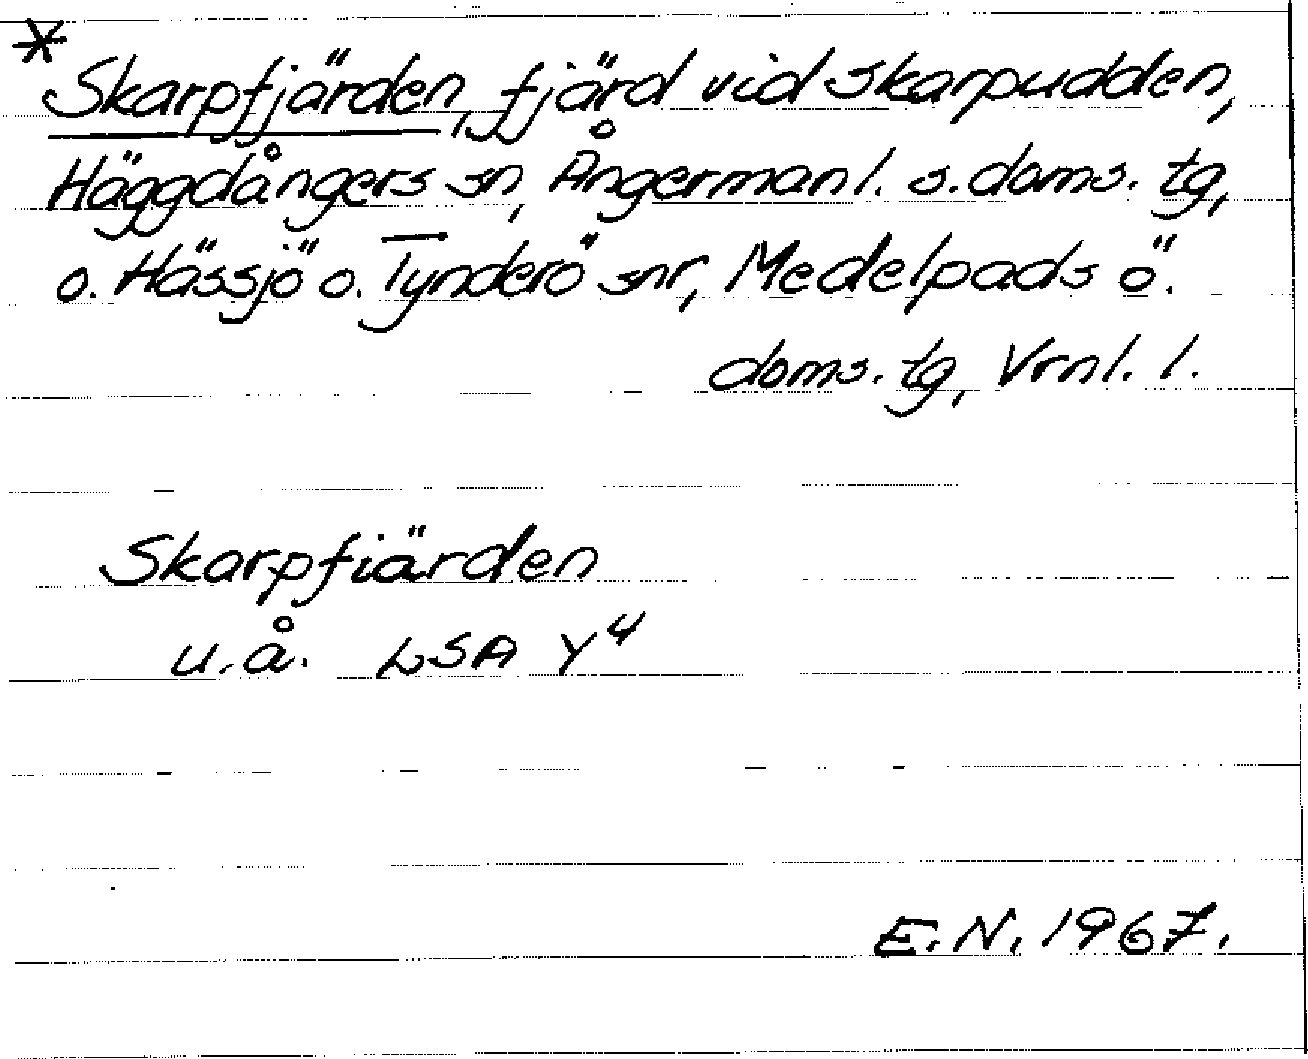 * Skarpfjärden, fjärd vid Skarpudden,
Häggdångers sn, Ångermanl. s. doms. tg,
o. Hässjö o. Tynderö snr, Medelpads ö.
doms. tg, Vrnl. l.
Skarpfiärden
u.å. LSA Y⁴
E.N. 1967.